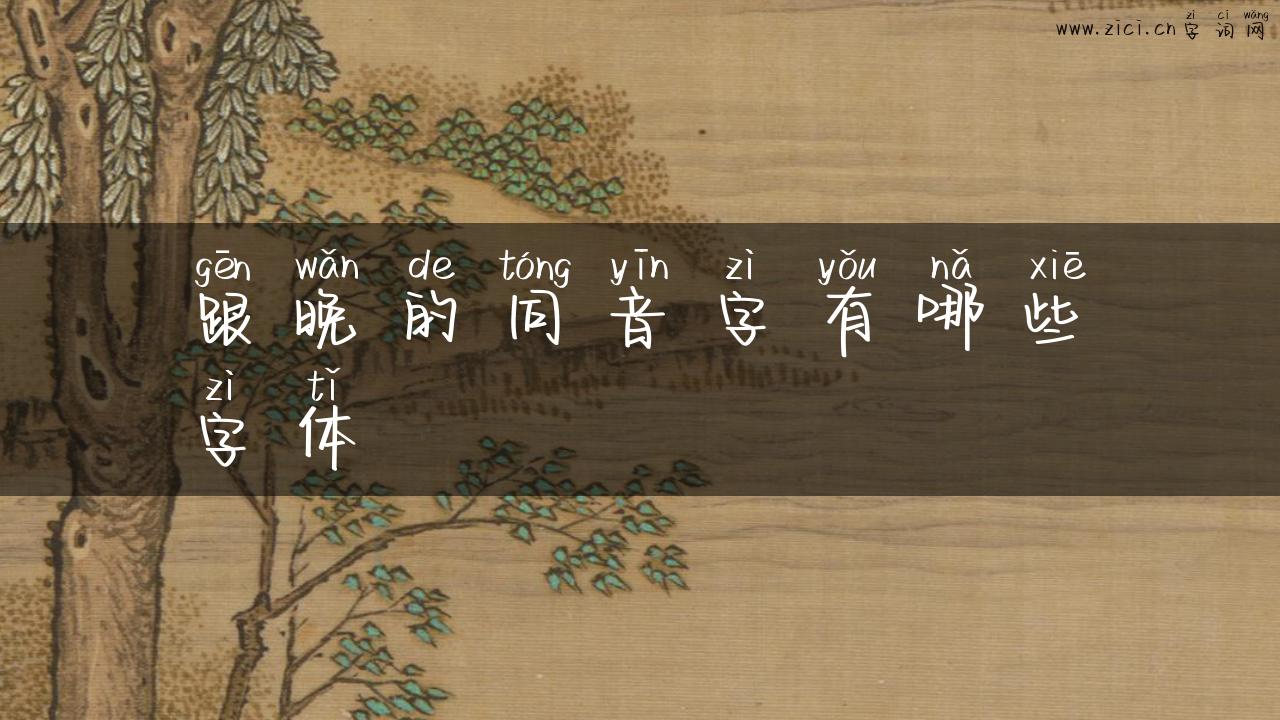 zì cí wǎng
www.zici.cn 字词网
gēn wǎn de tóng yīn zì yǒu nǎ xiē
跟晚的同音字有哪些
zì tǐ
字体